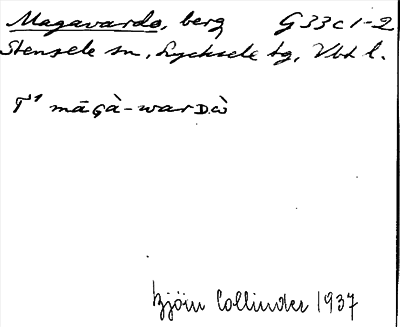 Magavardo, berg G 33 c 1-2
Stensele sn, Lycksele tg, Vbt l.
T¹ māGà-warDὼ
Björn Collinder 1937